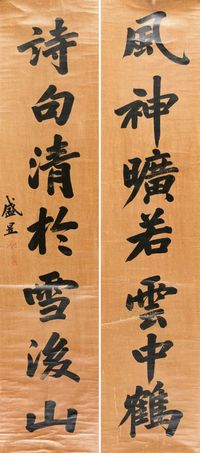 風神曠若雲中鶴
詩句清於雪後山
盛昱